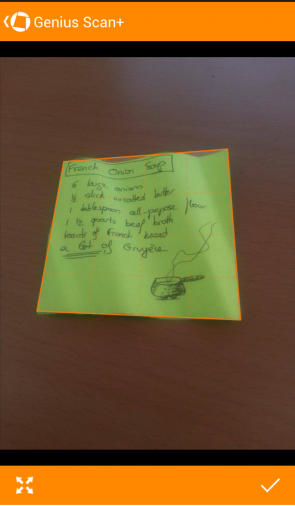 Genius Scan+
French Onion Soup
6 large onions
½ stick unsalted butter
1 tablespoon all-purpose flour
1 ½ quarts beef broth
toasts of French bread
a lot of Gruyère